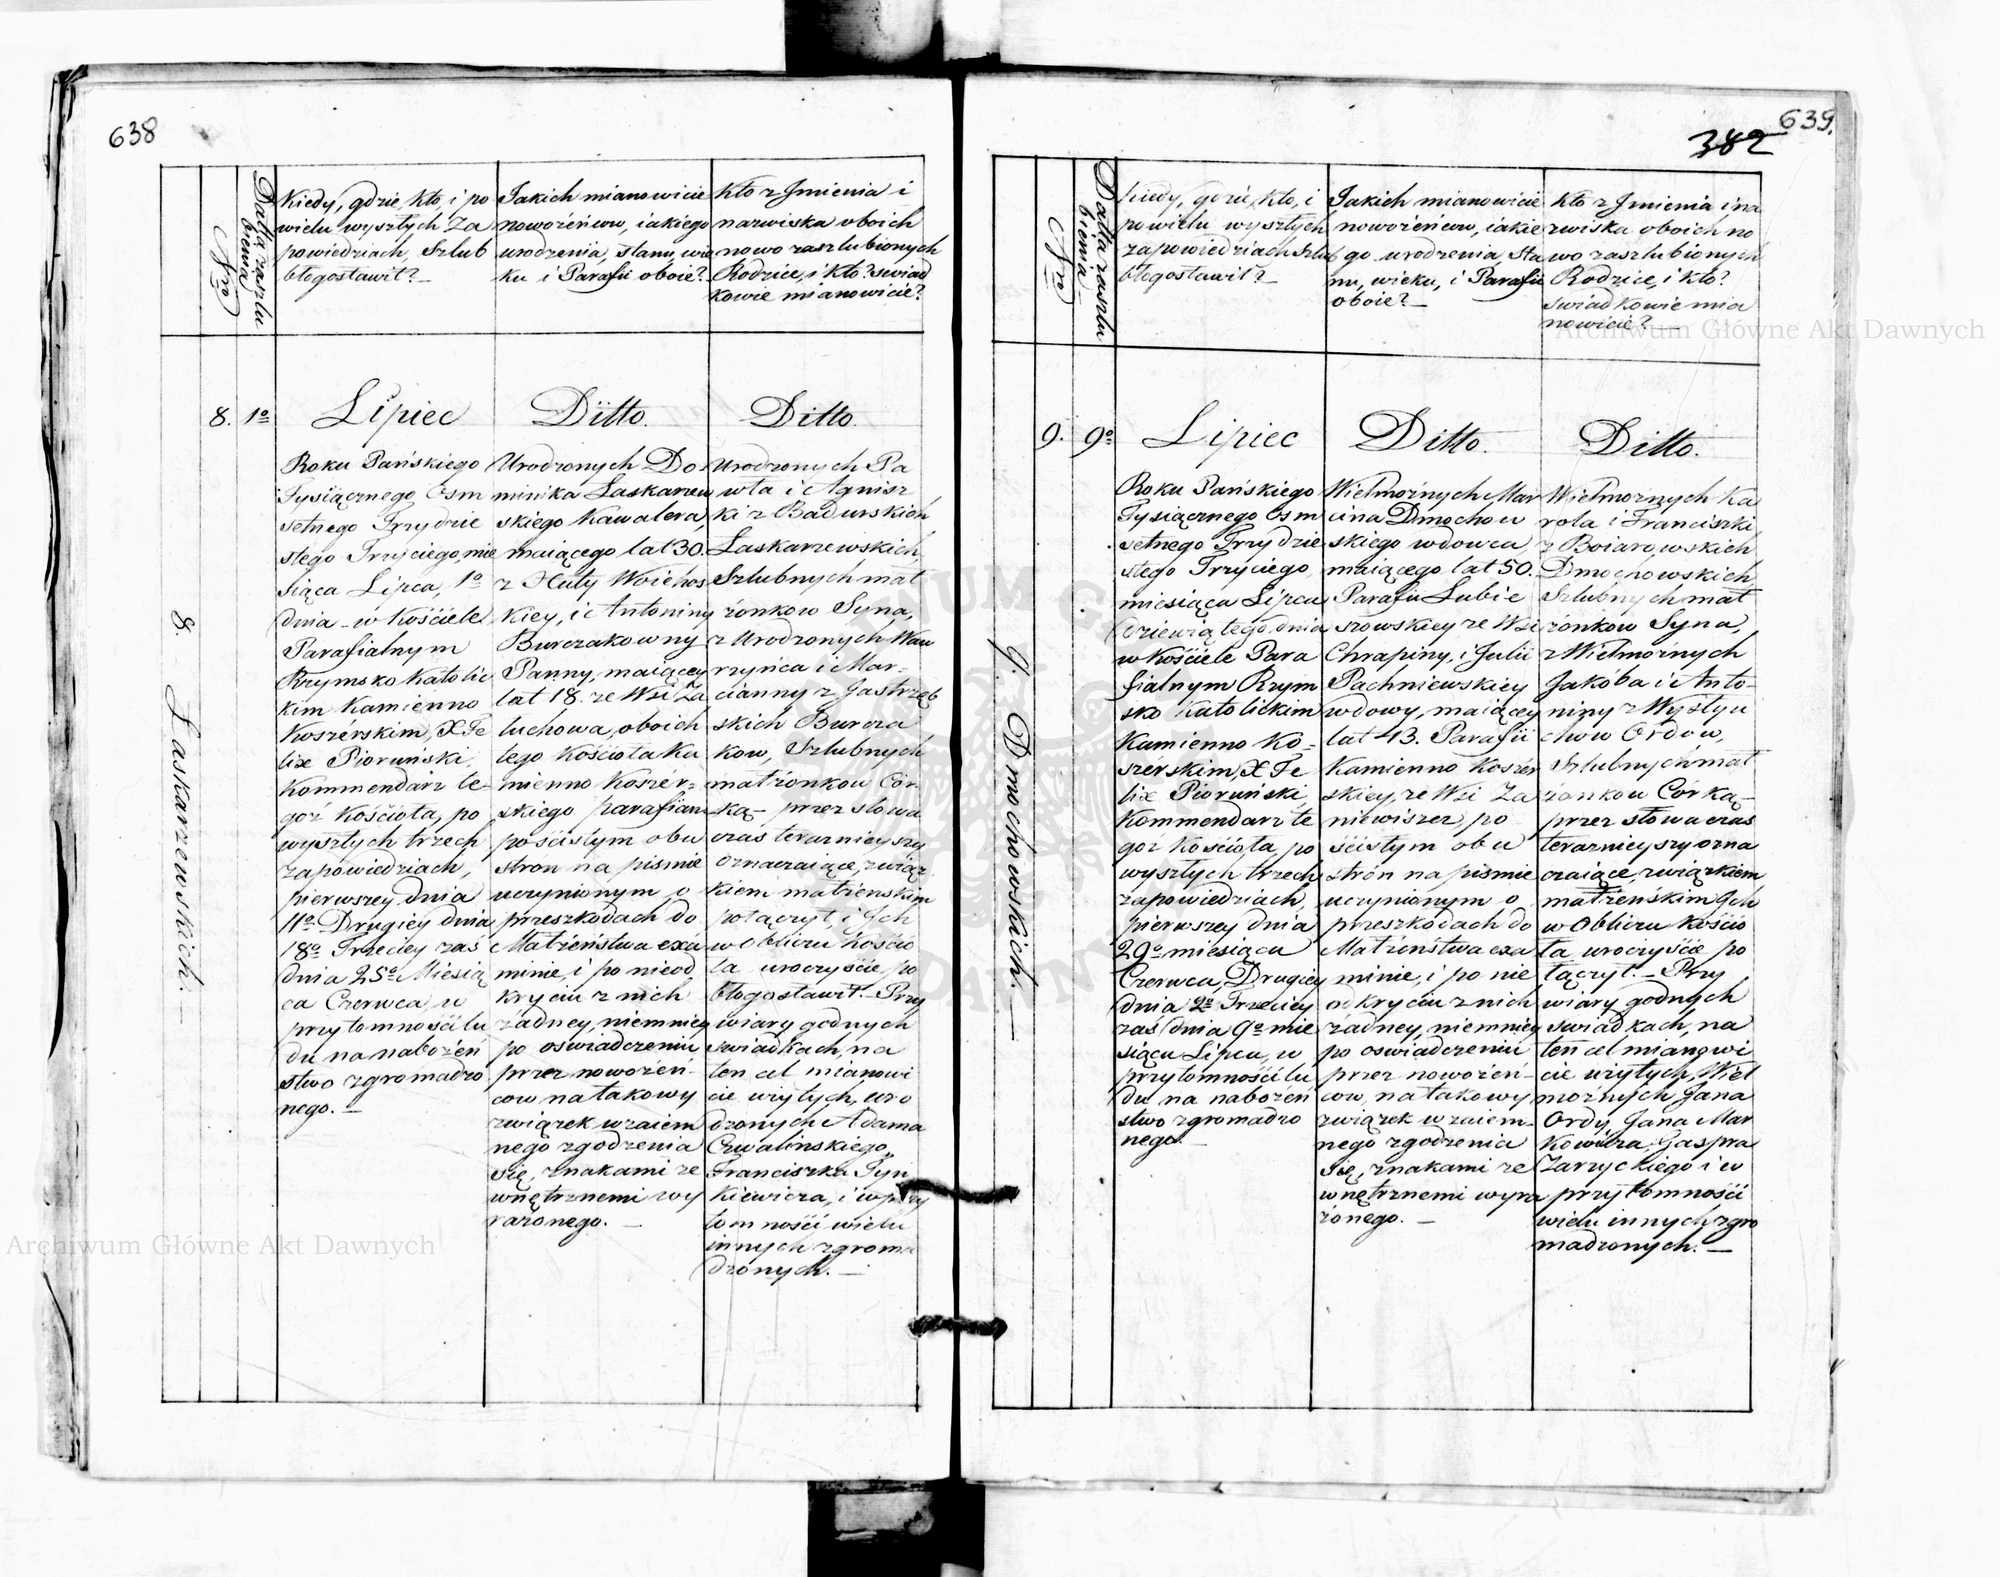 638
Nro
Data zaszlu
bienia
Kiedy, gdzie, kto, i po
wielu wyszłych Za
powiedziach, Szlub
błogosławił? —
Jakich mianowicie
nowożeńcow, iakiego
urodzenia, stanu, wie
ku i Parafii oboie?
Kto z Jmienia i
nazwiska oboich
nowo zaszlubionych
Rodzice, i kto? swiad
kowie mianowicie?
8. Laskarzewskich. —
8.
1o
Lipiec
Roku Pańskiego
Tysiącznego Osm
setnego Trzydzie
stego Trzyciego, mie
siąca Lipca, 1o
dnia w Kościele
Parafialnym
Rzymsko Katolic
kim Kamienno
Koszérskim, X Fe
lix Pioruński,
Kommendarz te
góż Kościoła, po
wyszłych trzech
zapowiedziach,
pierwszey dnia
11o Drugiey dnia
18o Trzeciey zaś
dnia 25o Miesią
ca Czerwca, w
przytomności lu
du na nabożeń
stwo zgromadzo
nego. —
Ditto.
Urodzonych Do
minika Laskarzew
skiego Kawalera
maiącego lat 30.
z Huty Woiehos
kiey, i Antoniny
Burczakowny
Panny, maiącey
lat 18. ze Wsi Za
luchowa, oboich
tego Kościoła Ka
mienno Koszér-
skiego parafian
po ścisłym obu
stron na pismie
uczynionym o
przeszkodach do
Matżeństwa exa
minie, i po nieod
kryciu z nich
żadney, niemniey
po oswiadczeniu
przez nowożeń-
cow na takowy
związek wzaiem
nego zgodzenia
się, znakami ze
wnętrznemi wy
rażonego. —
Ditto.
Urodzonych Pa
wła i Agnisz
ki z Badurskich
Laskarzewskich,
Szlubnych mał
żonkow Syna,
z Urodzonych Waw
rzyńca i Mar-
cianny z Jastrzęb
skich Burcza
kow, Szlubnych
małżonkow Cór-
ką — przez słowa
czas teraznieyszy
oznaczaiące, związ
kiem matżenskim
połączył, i Jch
w Obliczu Kościo
ła uroczyście po
błogosławił. — Przy
wiary godnych
swiadkach, na
ten cel mianowi
cie użytych, uro
dzonych Adama
Czwalinskiego,
Franciszka Tyn
kiewicza, i w przy
tomności wielu
innych zgroma
dzonych. —
382
639.
Nro
Data zaszlu
bienia
Kiedy, gdzie, kto, i
po wielu wyszłych
zapowiedziach Szlub
błogosławił? —
Jakich mianowicie
nowożeńcow, iakie
go urodzenia, sta
nu, wieku, i Parafii
oboie? —
Kto z Jmienia i na
zwiska oboich no
wo zaszlubionych
Rodzice, i kto?
swiadkowie mia
nowicie? —
9. Dmochowskich. —
9.
9o
Lipiec
Roku Pańskiego
Tysiącznego Osm
setnego Trzydzie
stego Trzyciego,
miesiąca Lipca
dziewiątego dnia
w Kościele Para
fialnym Rzym
sko Katolickim
Kamienno Ko-
szérskim, X Fe
lix Pioruński
Kommendarz te
goż Kościoła, po
wyszłych trzech
zapowiedziach,
pierwszey dnia
29o miesiąca
Czerwca, Drugiey
dnia 2o Trzeciey
zaś dnia 9o mie
siąca Lipca, w
przytomności lu
du na nabożeń
stwo zgromadzo
nego. —
Ditto.
Wielmożnych Mar
cina Dmochow
skiego wdowca,
maiącego lat 50.
Parafii Lubie
szowskiey ze Wsi
Chrapiny, i Julii
Pachniewskiey
wdowy, maiącey
lat 43. Parafii
Kamienno Koszér
skiey, ze Wsi Za
niewiszcz, po
ścisłym obu
strón na pismie
uczynionym o
przeszkodach do
Matżeństwa exa
minie, i po nie
odkryciu z nich
żadney, niemniey
po oswiadczeniu
przez nowożeń-
cow, na takowy
związek wzaiem-
nego zgodzenia
się, znakami ze
wnętrznemi wyra
żonego. —
Ditto.
Wielmożnych Ka
rola i Franciszki
z Boiarowskich
Dmochowskich,
Szlubnych mał
żonkow Syna,
z Wielmożnych
Jakóba i Anto-
niny z Wysłyu
chow Ordow,
Szlubnych mał
żonkow Córką —
przez słowa czas
teraznieyszy ozna
czaiące, związkiem
matżeńskim Jch
w Obliczu Kościo
ła uroczyście po
łączył. — Przy
wiary godnych
swiadkach, na
ten cel mianowi
cie użytych, Wiel
możnych Jana
Ordy, Jana Mar
kowicza, Gaspra
Zarzyckiego i w
przytomności
wielu innych zgro
madzonych. —
Archiwum Główne Akt Dawnych
Archiwum Główne Akt Dawnych